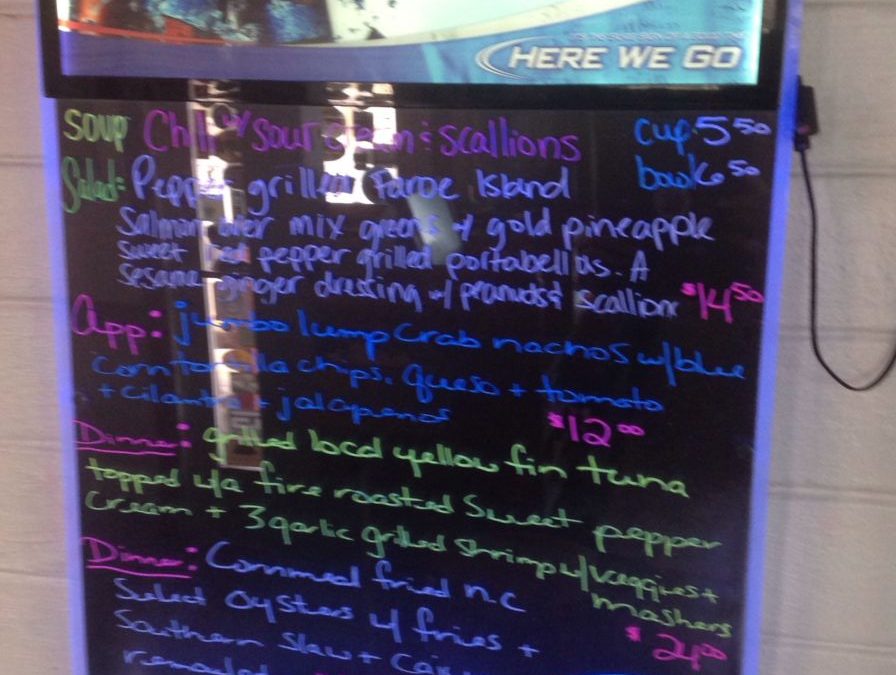 HERE WE GO
Soup Chili w/ sour cream & scallions cup 5 50
Salad: Pepper grilled Faroe Island bowl 6 50
Salmon over mix greens w/ gold pineapple
sweet red pepper grilled portabellas. A
Sesame ginger dressing w/ peanuts & scallions $14 50
App: jumbo lump crab nachos w/ blue
corn tortilla chips. queso + tomato
+ cilantro + jalapenos $12 00
Dinner: grilled local yellow fin tuna
topped w/ a fire roasted sweet pepper
cream + 3 garlic grilled shrimp w/ veggies +
mashers
Dinner: Cornmeal fried n.c $24 00
Select oysters w/ fries +
Southern slaw +